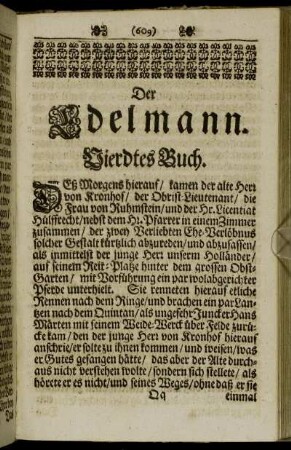 (609)
Der
Edelmann.
Vierdtes Buch.
DEß Morgens hierauf/ kamen der alte Herr
von Kronhof/ der Obrist-Lieutenant/ die
Frau von Ruhmstein/ und der Hr. Licentiat
Hülffrecht/ nebst dem Hn. Pfarrer in einem Zimmer
zusammen/ der zween Verliebten Ehe-Verlöbnus
solcher Gestalt kürtzlich abzureden/ und abzufassen/
als inmittelst der junge Herr unserm Holländer/
auf seinem Reit-Platze hinter dem grossen Obst-
Garten/ mit Vorführung ein par wolabgerichter
Pferde unterhielt. Sie renneten hierauf etliche
Rennen nach dem Ringe/ und brachen ein par Lan-
tzen nach dem Quintan/ als ungefehr Juncker Hans
Märten mit seinem Weide-Werck über Felde zurü-
cke kam/ den der junge Herr von Kronhof hierauf
anschrie/ er solte zu ihnen kommen/ und weisen/ was
er Gutes gefangen hätte/ das aber der Alte durch-
aus nicht verstehen wolte/ sondern sich stellete/ als
hörete er es nicht/ und seines Weges/ ohne daß er sie
Qq einmal